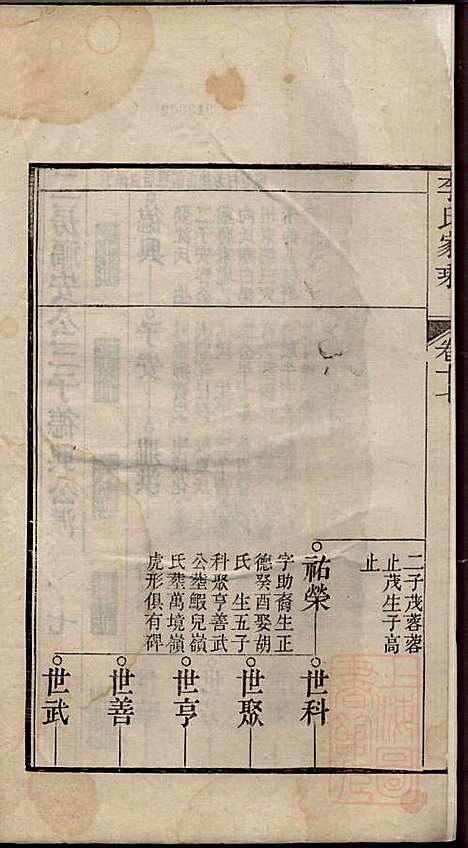 李氏家乘
卷十七
二子茂蓉蓉
止茂生子高
止
祐榮
字助裔生正
德癸酉娶胡
氏 生五子
科聚亨善武
公塟鰕兒嶺
氏塟萬境嶺
虎形俱有碑
世科
世聚
世亨
世善
世武